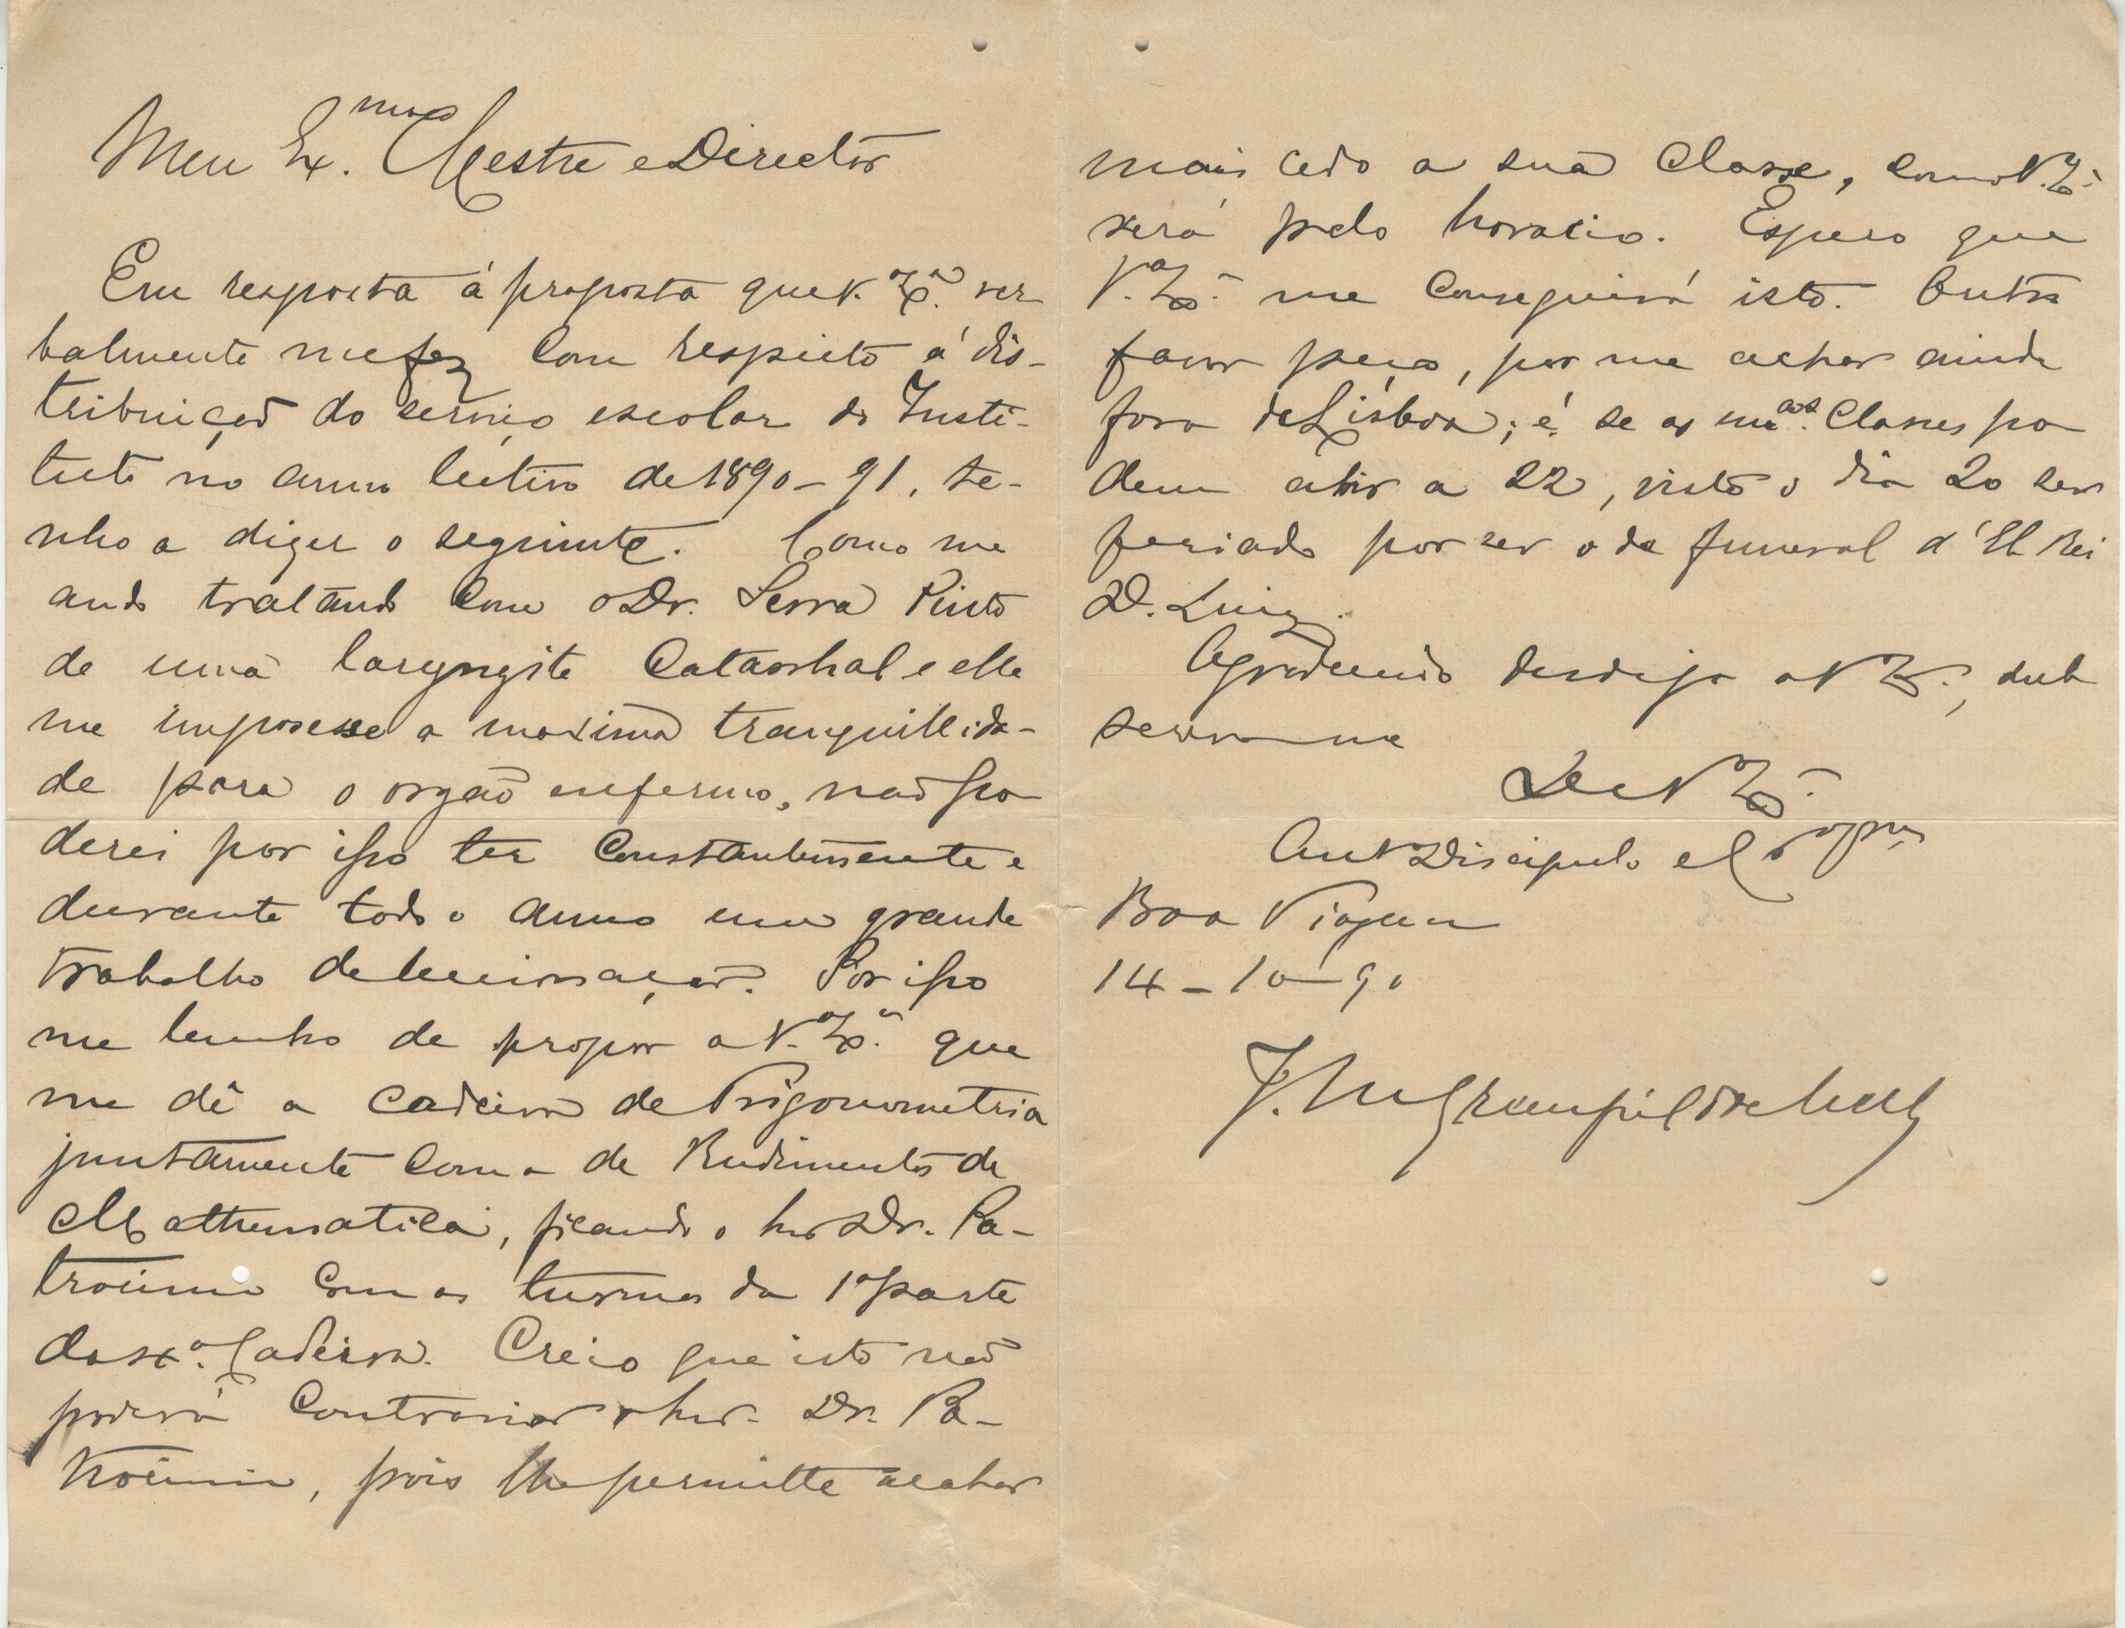 Meu Ex.mo Mestre e Director
Em resposta á proposta que V. Ex.ª ver
balmente me fez com respeito á dis-
tribuição do serviço escolar do Insti-
tuto no anno lectivo de 1890-91, te-
nho a dizer o seguinte. Como me
ando tratando com o Dr. Serra Pinto
de uma laryngite catarrhal e elle
me impozesse a maxima tranquillida-
de para o orgão enfermo, não po
derei por isso ter constantemente e
durante todo o anno um grande
trabalho de leccionação. Por isso
me lembro de propor a V. Ex.ª que
me dê a cadeira de Trigonometria
juntamente com a de Rudimentos de
Mathematica, ficando o Snr Dr. Pa-
trocinio com as turmas da 1ª parte
da Cadeira. Creio que isto não
poderá contrariar o Snr. Dr. Pa-
trocinio, pois lhe permitte acabar
mais cedo a sua classe, como V. Ex.ª
verá pelo horario. Espero que
V. Ex.ª me conseguirá isto. Outro
favor peço, por me achar ainda
fora de Lisboa; é se as m.as classes po
dem abrir a 22, visto o dia 20 ser
feriado por ser o do funeral d'El Rei
D. Luiz.
Agradecendo desde já a V Ex.ª, sub
screvo-me
De V Ex.ª
Discipulo e
Boa Viagem
14-10-90
J. M.